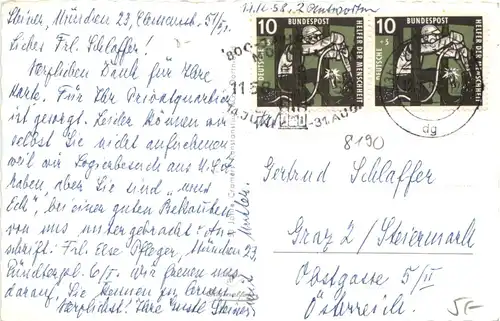 Steiner, München 23, Clemensstr. 51/II.
Liebes Frl. Schlaffer!
Herzlichen Dank für Ihre
Karte. Für Ihr Privatquartier
ist gesorgt. Leider können wir
selbst Sie nicht aufnehmen
weil wir Logierbesuch aus U.S.A.
haben, aber Sie sind "ums
Eck", bei einer guten Bekannten
von uns untergebracht. An-
schrift: Frl. Else Pfleger, München 23,
6/I. Wir freuen uns
darauf, Sie kennen zu lernen
Herzlichst! Ihre
10
DEUTSCHE BUNDESPOST
HELFER DER MENSCHHEIT
10
DEUTSCHE BUNDESPOST
HELFER DER MENSCHHEIT
-31.AUG
dg
8190
Gertrud Schlaffer
Graz 2 / Steiermark
Obstgasse 5/II
Österreich.
5-